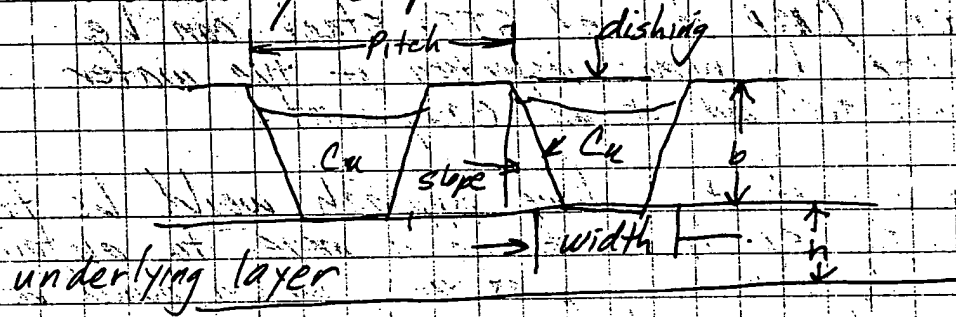 Pitch
dishing
Cu
slope
Cu
b
width
h
underlying layer